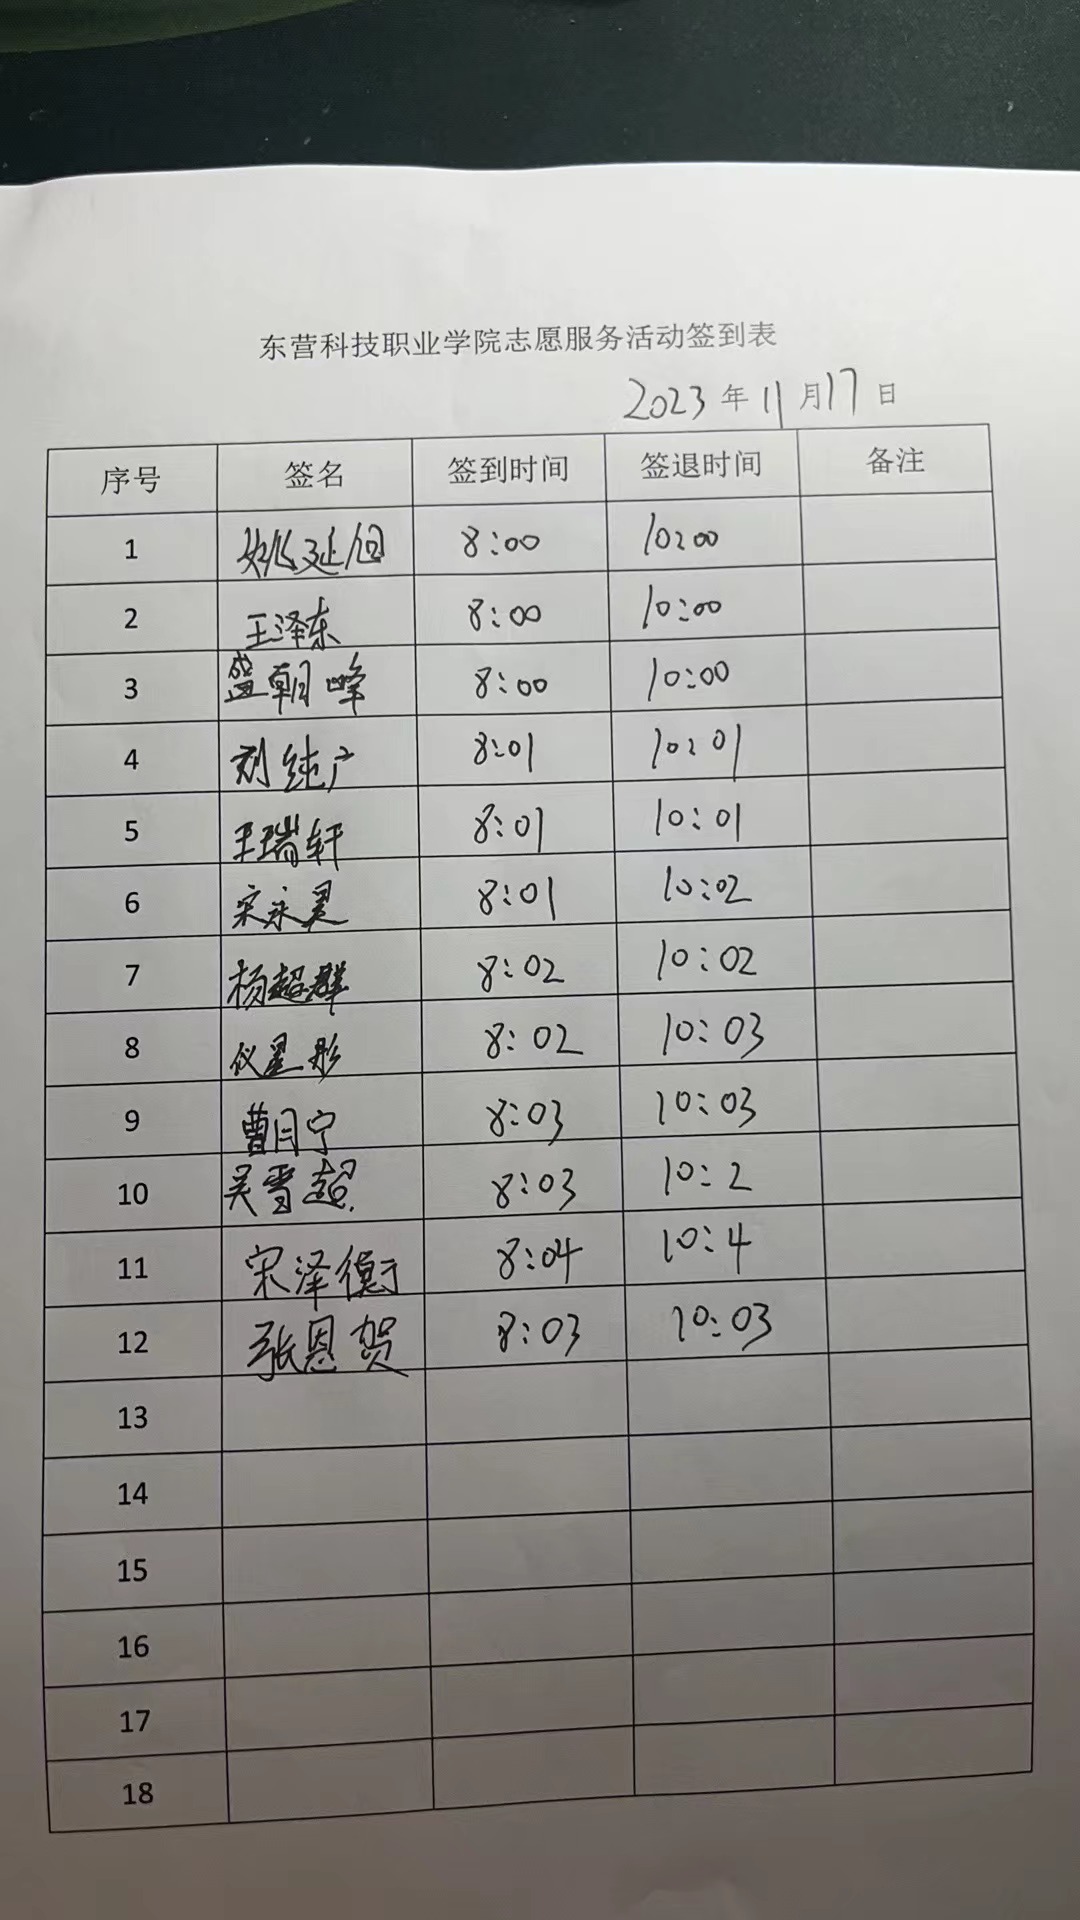 东营科技职业学院志愿服务活动签到表
2023 年 11 月 17 日
序号 签名 签到时间 签退时间 备注
1 姚延 8:00 10:00
2 王泽东 8:00 10:00
3 盛朝峰 8:00 10:00
4 刘纯广 8:01 10:01
5 王瑞轩 8:01 10:01
6 宋永 8:01 10:02
7 杨超群 8:02 10:02
8 仪星彤 8:02 10:03
9 曹月宁 8:03 10:03
10 吴晋超 8:03 10:2
11 宋泽衡 8:04 10:4
12 张恩贺 8:03 10:03
13
14
15
16
17
18